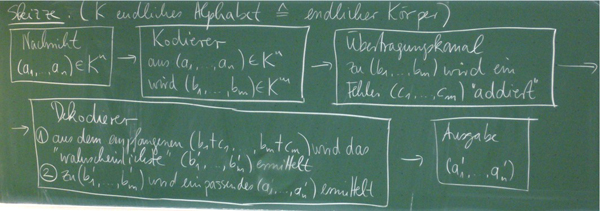 Skizze: (K endliches Alphabet ≙ endlicher Körper)
Nachricht
(a₁,…,aₙ)∈Kⁿ
Kodierer
aus (a₁,…,aₙ)∈Kⁿ
wird (b₁,…,bₘ)∈Kᵐ
Übertragungskanal
zu (b₁,…,bₘ) wird ein
Fehler (c₁,…,cₘ) "addiert"
Dekodierer
① aus dem empfangenen (b₁+c₁,…,bₘ+cₘ) wird das
"wahrscheinlichste" (b₁',…,bₘ') ermittelt
② zu (b₁',…,bₘ') wird ein passendes (a₁',…,aₙ') ermittelt
Ausgabe
(a₁',…,aₙ')